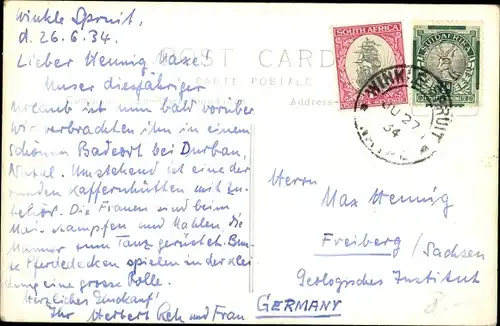 Winkle Spruit,
d. 26.6.34.
POST CARD
CARTE POSTALE
Address
Lieber Hennig Maxe!
Unser diesjähriger
Urlaub ist nun bald vorüber
Wir verbrachten ihn in einem
schönen Badeort bei Durban,
Natal. Umstehend ist eine der
runden Kaffernhütten mit Zu-
behör. Die Frauen sind beim
Mais-stampfen und Mahlen, die
Männer zum Tanz gerüstet. Bun-
te Pferdedecken spielen in der Klei-
dung eine grosse Rolle.
Herzliches Glückauf!
Ihr Herbert Reh und Frau
SOUTH AFRICA
SUIDAFRIKA
WINKLE SPRUIT
JU 27
34
Herrn
Max Hennig
Freiberg / Sachsen
Geologisches Institut
GERMANY